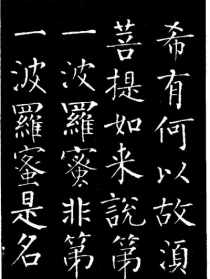 希有何以故須
菩提如来說第
一波羅蜜非第
一波羅蜜是名